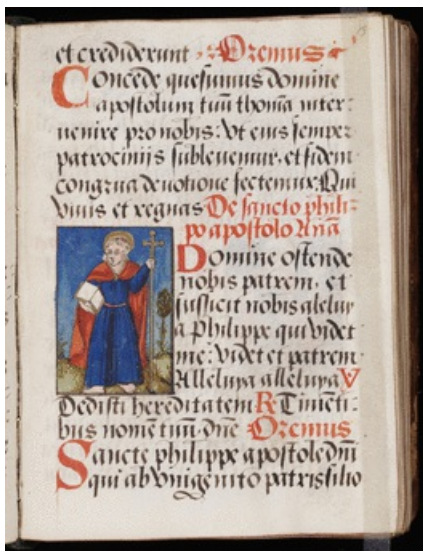 et crediderunt · Oremus
Concede quesumus domine
apostolum tuū thomā inter:
uenire pro nobis: Vt eius semper
patrocinijs subleuemur. et fidem
congrua deuotione sectemur. Qui
viuis et regnas De sancto phili-
po apostolo Añā
Domine ostende
nobis patrem. et
sufficit nobis aleluy
a Philippe qui videt
me: videt et patrem
Alleluya alleluya V
Dedisti hereditatem R Timenti:
bus nomē tuū. dñe Oremus
Sancte philippe apostole dñi
qui ab vnigenito patris filio